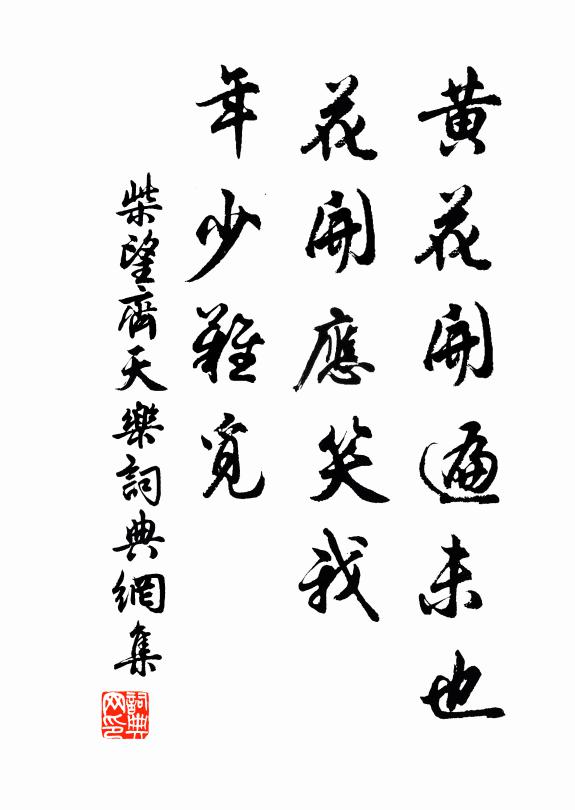 黄花開遍未也
花開應笑我
年少難覓
柴望齊天樂詞典網集
詞典網印